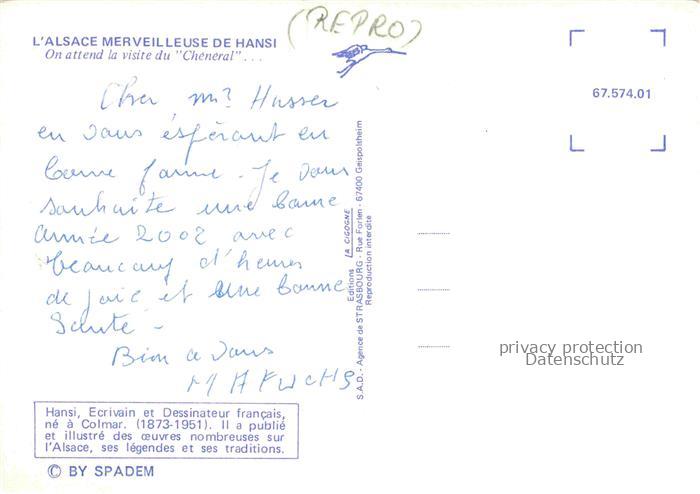 (REPRO)
L'ALSACE MERVEILLEUSE DE HANSI
On attend la visite du "Chénéral"...
67.574.01
Cher mr Husser
en vous éspérant en
bonne forme - Je vous
souhaite une bonne
année 2002 avec
beaucoup d'heures
de joie et une bonne
Santé -
Bien a vous
MA FUCHS
Editions LA CIGOGNE
S.A.D. - Agence de STRASBOURG - Rue Forlen - 67400 Geispolsheim
Reproduction interdite
privacy protection
Datenschutz
Hansi, Ecrivain et Dessinateur français,
né à Colmar. (1873-1951). Il a publié
et illustré des œuvres nombreuses sur
l'Alsace, ses légendes et ses traditions.
© BY SPADEM